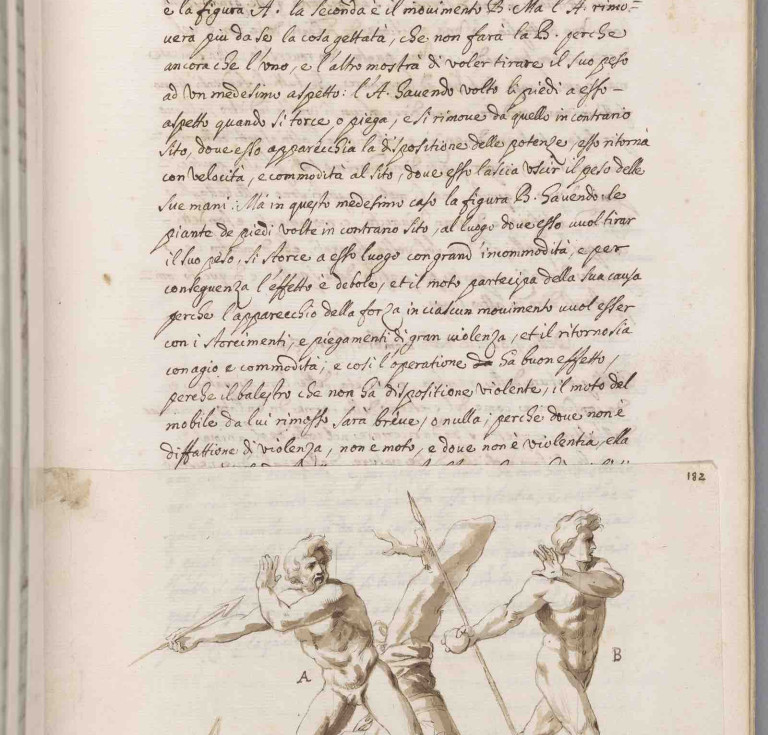 è la figura A: la seconda è il movimento B. Ma l'A. rimo=
verà più da se la cosa gettata, che non farà la B. perche
ancora che l'uno, e l'altro mostra di voler tirare il suo peso
ad un medesimo aspetto: l'A. havendo volto li piedi a esso
aspetto quando si torce o piega, e si rimove da quello in contrario
sito, dove esso apparecchia la dispositione delle potenze, esso ritorna
con velocità, e commodità al sito, dove esso lascia uscir il peso delle
sue mani: Ma in questo medesimo caso la figura B. havendo le
piante de piedi volte in contrario sito, al luogo dove esso vuol tirar
il suo peso, si storce a esso luogo con grand'incommodità, e per
conseguenza l'effetto è debole, et il moto partecipa della sua causa
perche l'apparecchio della forza in ciascun movimento vuol esser
con i storcimenti, e piegamenti di gran violenza, et il ritorno sia
con agio e commodità, e così l'operatione ha buon effetto,
perche il balestro che non ha dispositione violente, il moto del
mobile da lui rimosso sarà breve, o nulla, perche dove non è
diffattione di violenza, non è moto, e dove non è violentia, ella
182
A
B